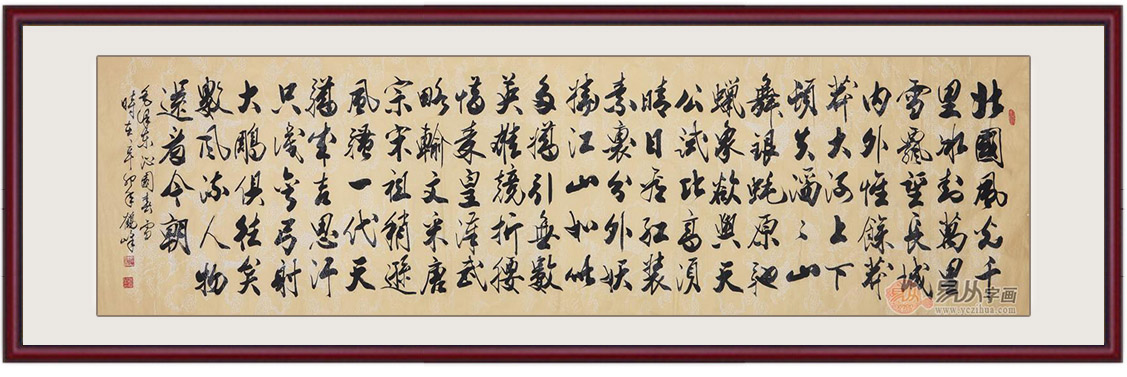 北國風光千
里冰封萬里
雪飄望長城
内外惟餘莽
莽大河上下
頓失滔〻山
舞銀蛇原驰
蠟象欲與天
公試比高須
晴日看紅裝
素裹分外妖
嬈江山如此
多嬌引無數
英雄競折腰
惜秦皇漢武
略輸文采唐
宗宋祖稍遜
風騷一代天
驕成吉思汗
只識彎弓射
大鵰俱往矣
數風流人物
還看今朝
毛澤東沁園春雪
時在辛卯年
易从
易从字画
www.yczihua.com